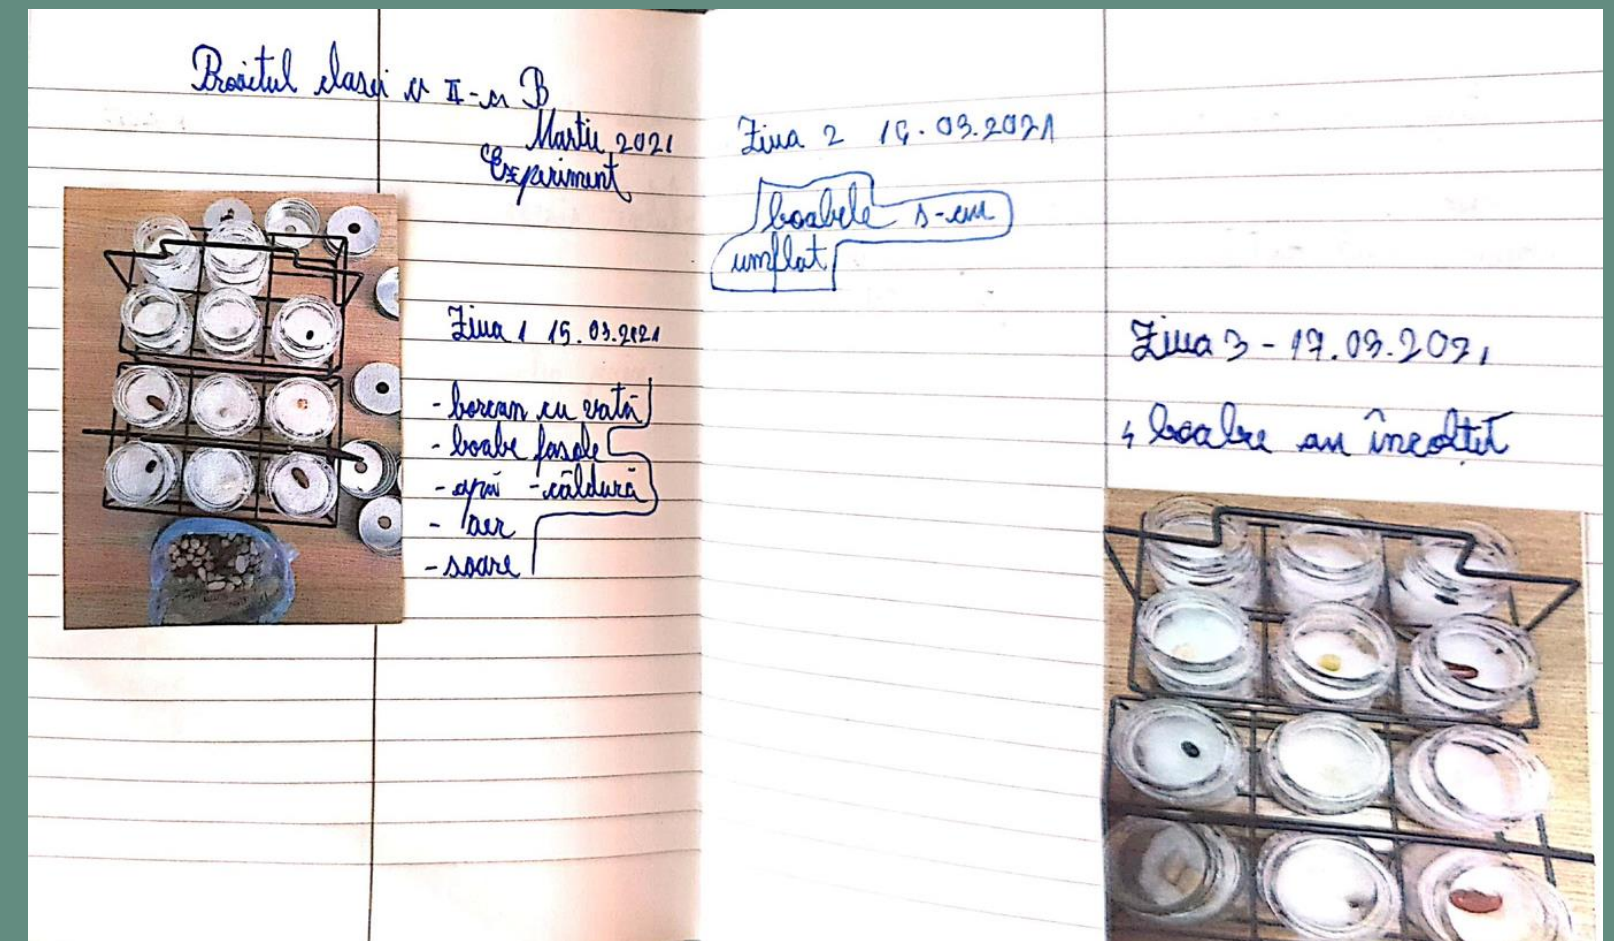 Proiectul clasei a II-a B
Martie 2021
Experiment
Ziua 1 15.03.2021
- borcan cu vată
- boabe fasole
- apă - căldură
- aer
- soare
Ziua 2 16.03.2021
boabele s-au
umflat
Ziua 3 - 17.03.2021
4 boabe au încolțit